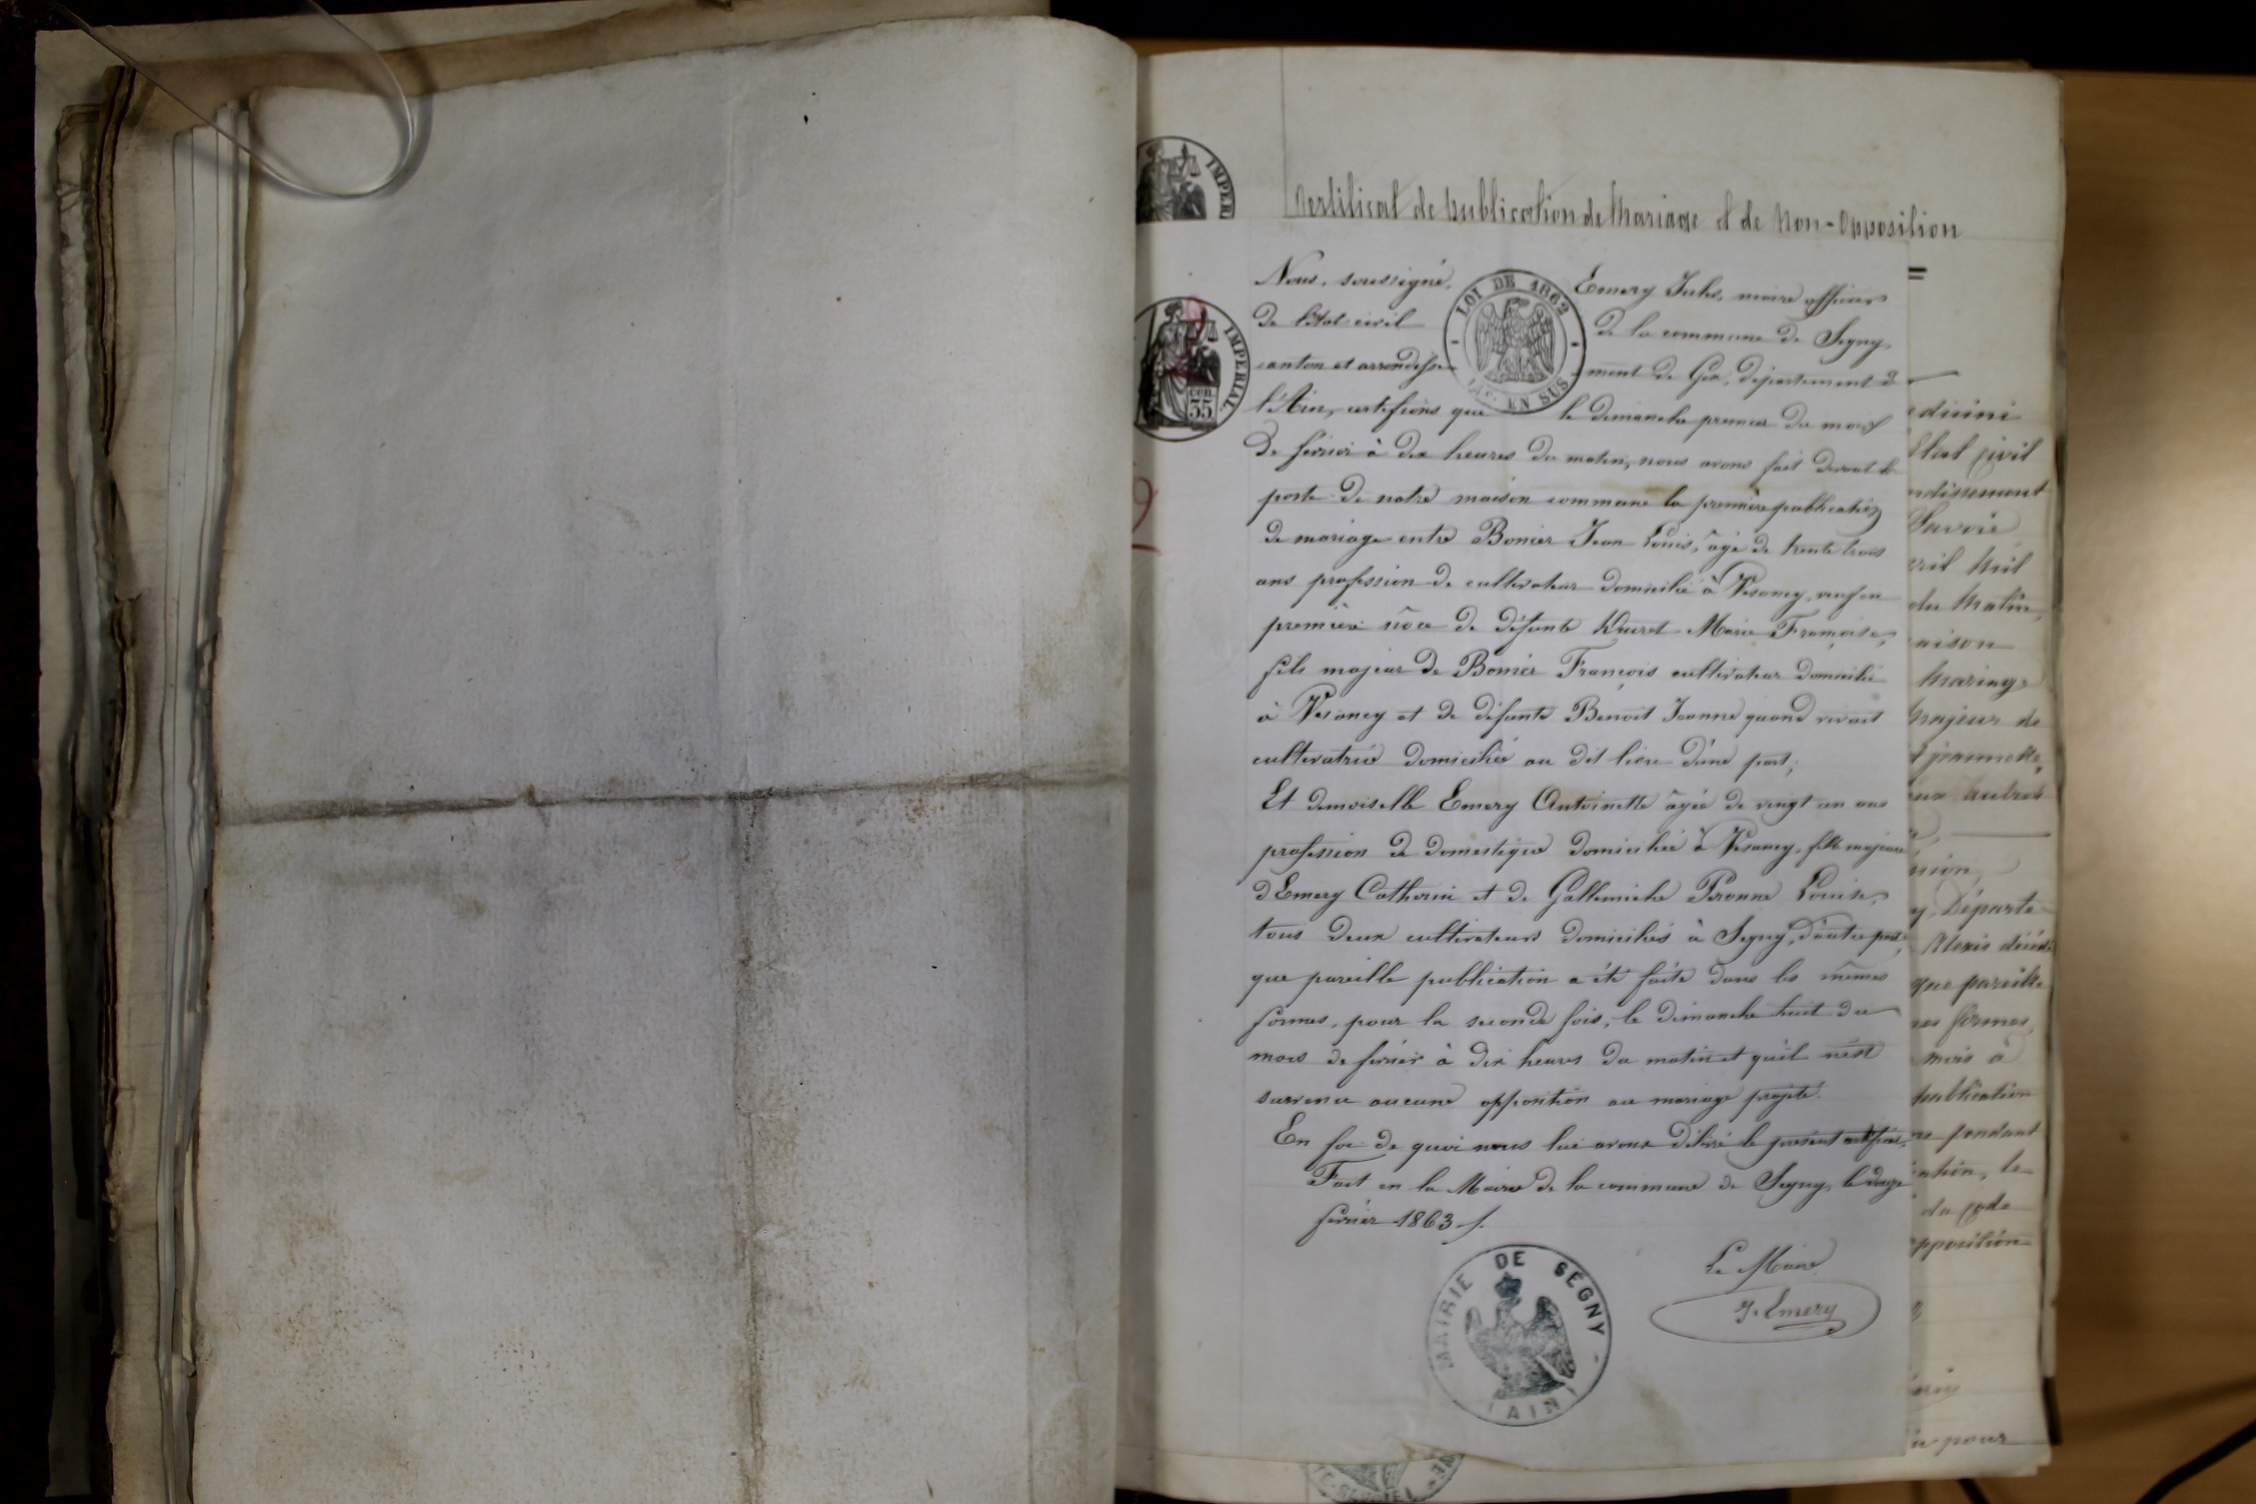 Certificat de Publication de Mariage et de Non-Opposition
IMPER
Nous, soussigné, Emery Jules, maire officier
de l'état civil de la commune de Segny,
canton et arrondisse-ment de Gex, département de
l'Ain, certifions que le dimanche premier du mois
de février à dix heures du matin, nous avons fait devant la
porte de notre maison commune la première publication
de mariage entre Bonier Jean Louis, âgé de trente trois
ans profession de cultivateur domicilié à Vesancy, veuf en
première nôce de défunte Marie Françoise,
fils majeur de Bonier François cultivateur domicilié
à Vesancy et de défunte Benoit Jeanne quand vivait
cultivatrice domiciliée au dit lieu d'une part;
Et demoiselle Emery Antoinette âgée de vingt un ans
profession de domestique domiciliée à Vesancy, fille majeure
d'Emery Catherin et de Peronne Louise,
tous deux cultivateurs domiciliés à Segny, d'autre part,
que pareille publication a été faite dans les mêmes
formes, pour la seconde fois, le dimanche huit du
mois de février à dix heures du matin et qu'il n'est
survenu aucune opposition au mariage projeté.
En foi de quoi nous lui avons délivré le présent certificat.
Fait en la Mairie de la commune de Segny, le douze
février 1863
Le Maire
J. Emery
LOI DE 1862
EN SUS
IMPERIAL
35
9
MAIRIE DE SÉGNY
(AIN)
=
état civil
ndissement
Savoie
vril Mil
du Matin,
aison
Mariage
Majeur de
eux autres
Départe
Alexis décédé
que pareille
es formes,
mois à
publication
pendant
ation, le
du code
pposition
pour